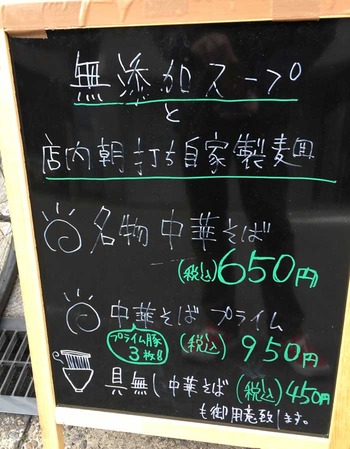 無添加スープ
と
店内朝打ち自家製麺
名物中華そば
(税込)650円
中華そばプライム
プライム豚
3枚!!
(税込)950円
具無し中華そば(税込)450円
も御用意致します。